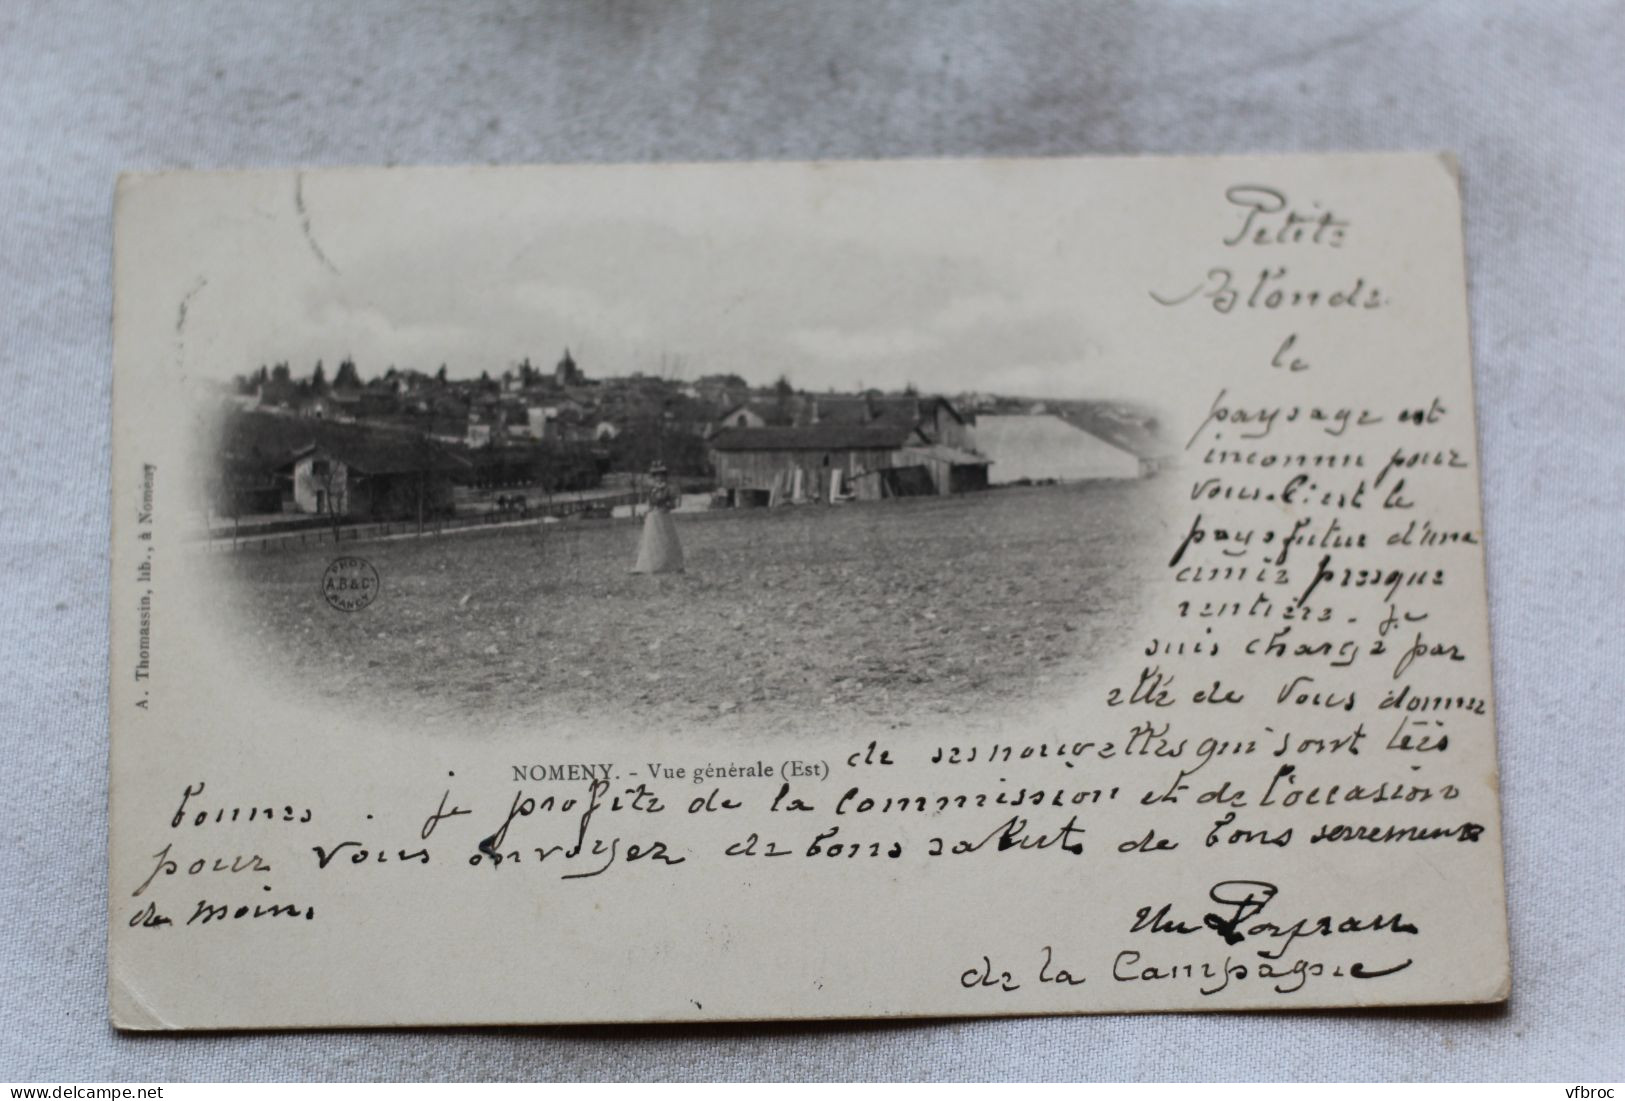 Petite
Blonde
le
paysage est
inconnu pour
vous. C'est le
pays futur d'une
amie presque
rentière. Je
suis chargé par
elle de vous donner
de ses nouvelles qui sont très
bonnes. je profite de la commission et de l'occasion
pour vous envoyer de bons saluts de bons serrements
de main.
Un Paysan
de la Campagne
NOMENY. - Vue générale (Est)
A. Thomassin, lib., à Nomény
PHOT.
A.B & Cie
NANCY
Delcampe.net
vfbroc